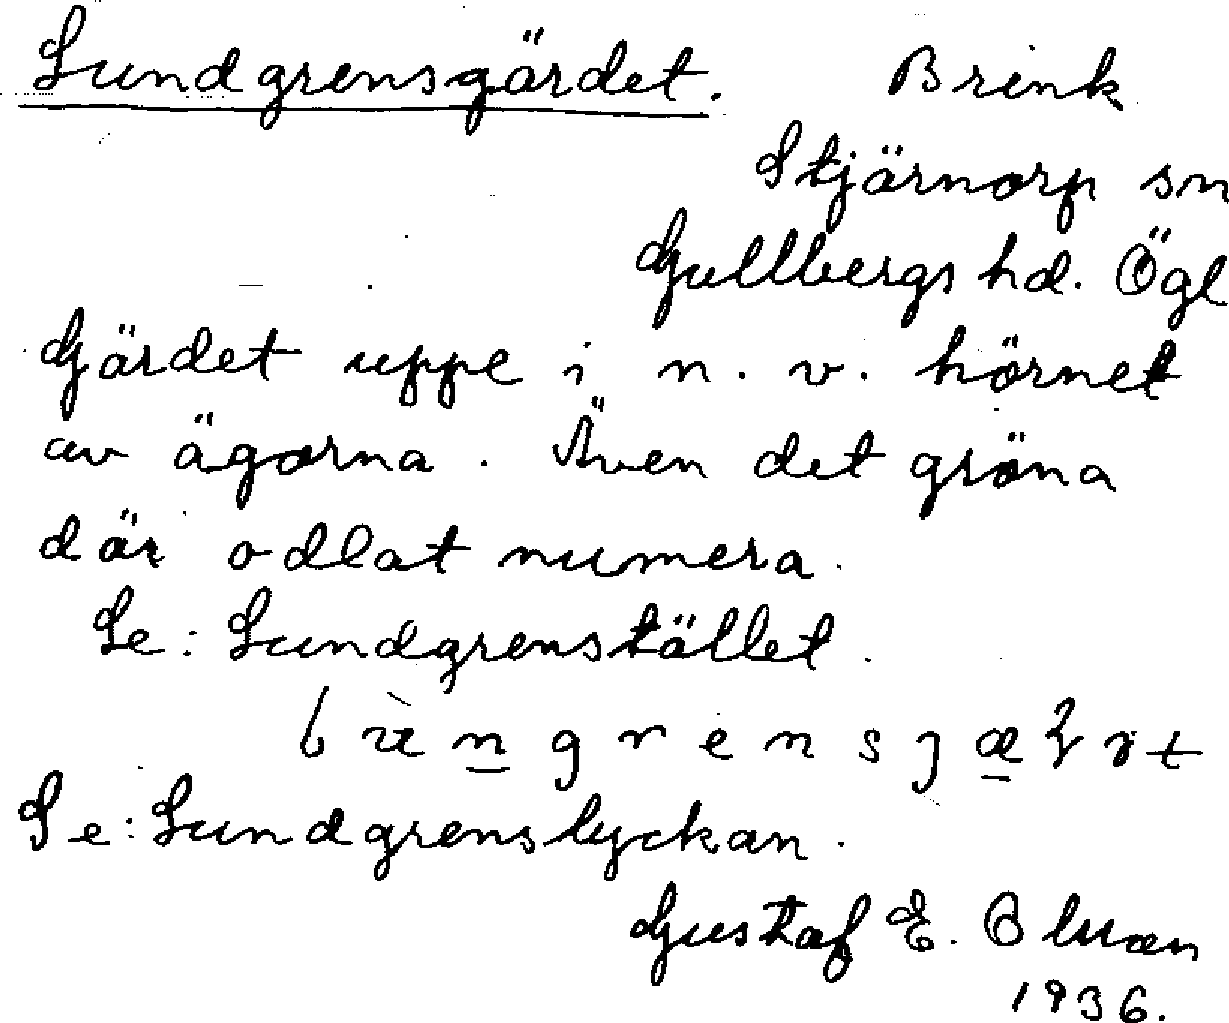 Lundgrensgärdet. Brink
Stjärnorp sn
Gullbergs hd. Ögl
Gärdet uppe i n. v. hörnet
av ägorna. Även det gröna
där odlat numera.
Se: Lundgrenstället.
Se: Lundgrenslyckan.
Gustaf E.
1936.